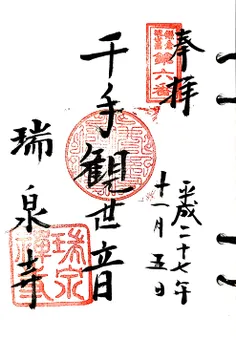 奉拝
第六番
千手観世音
平成二十七年
十一月五日
瑞泉寺